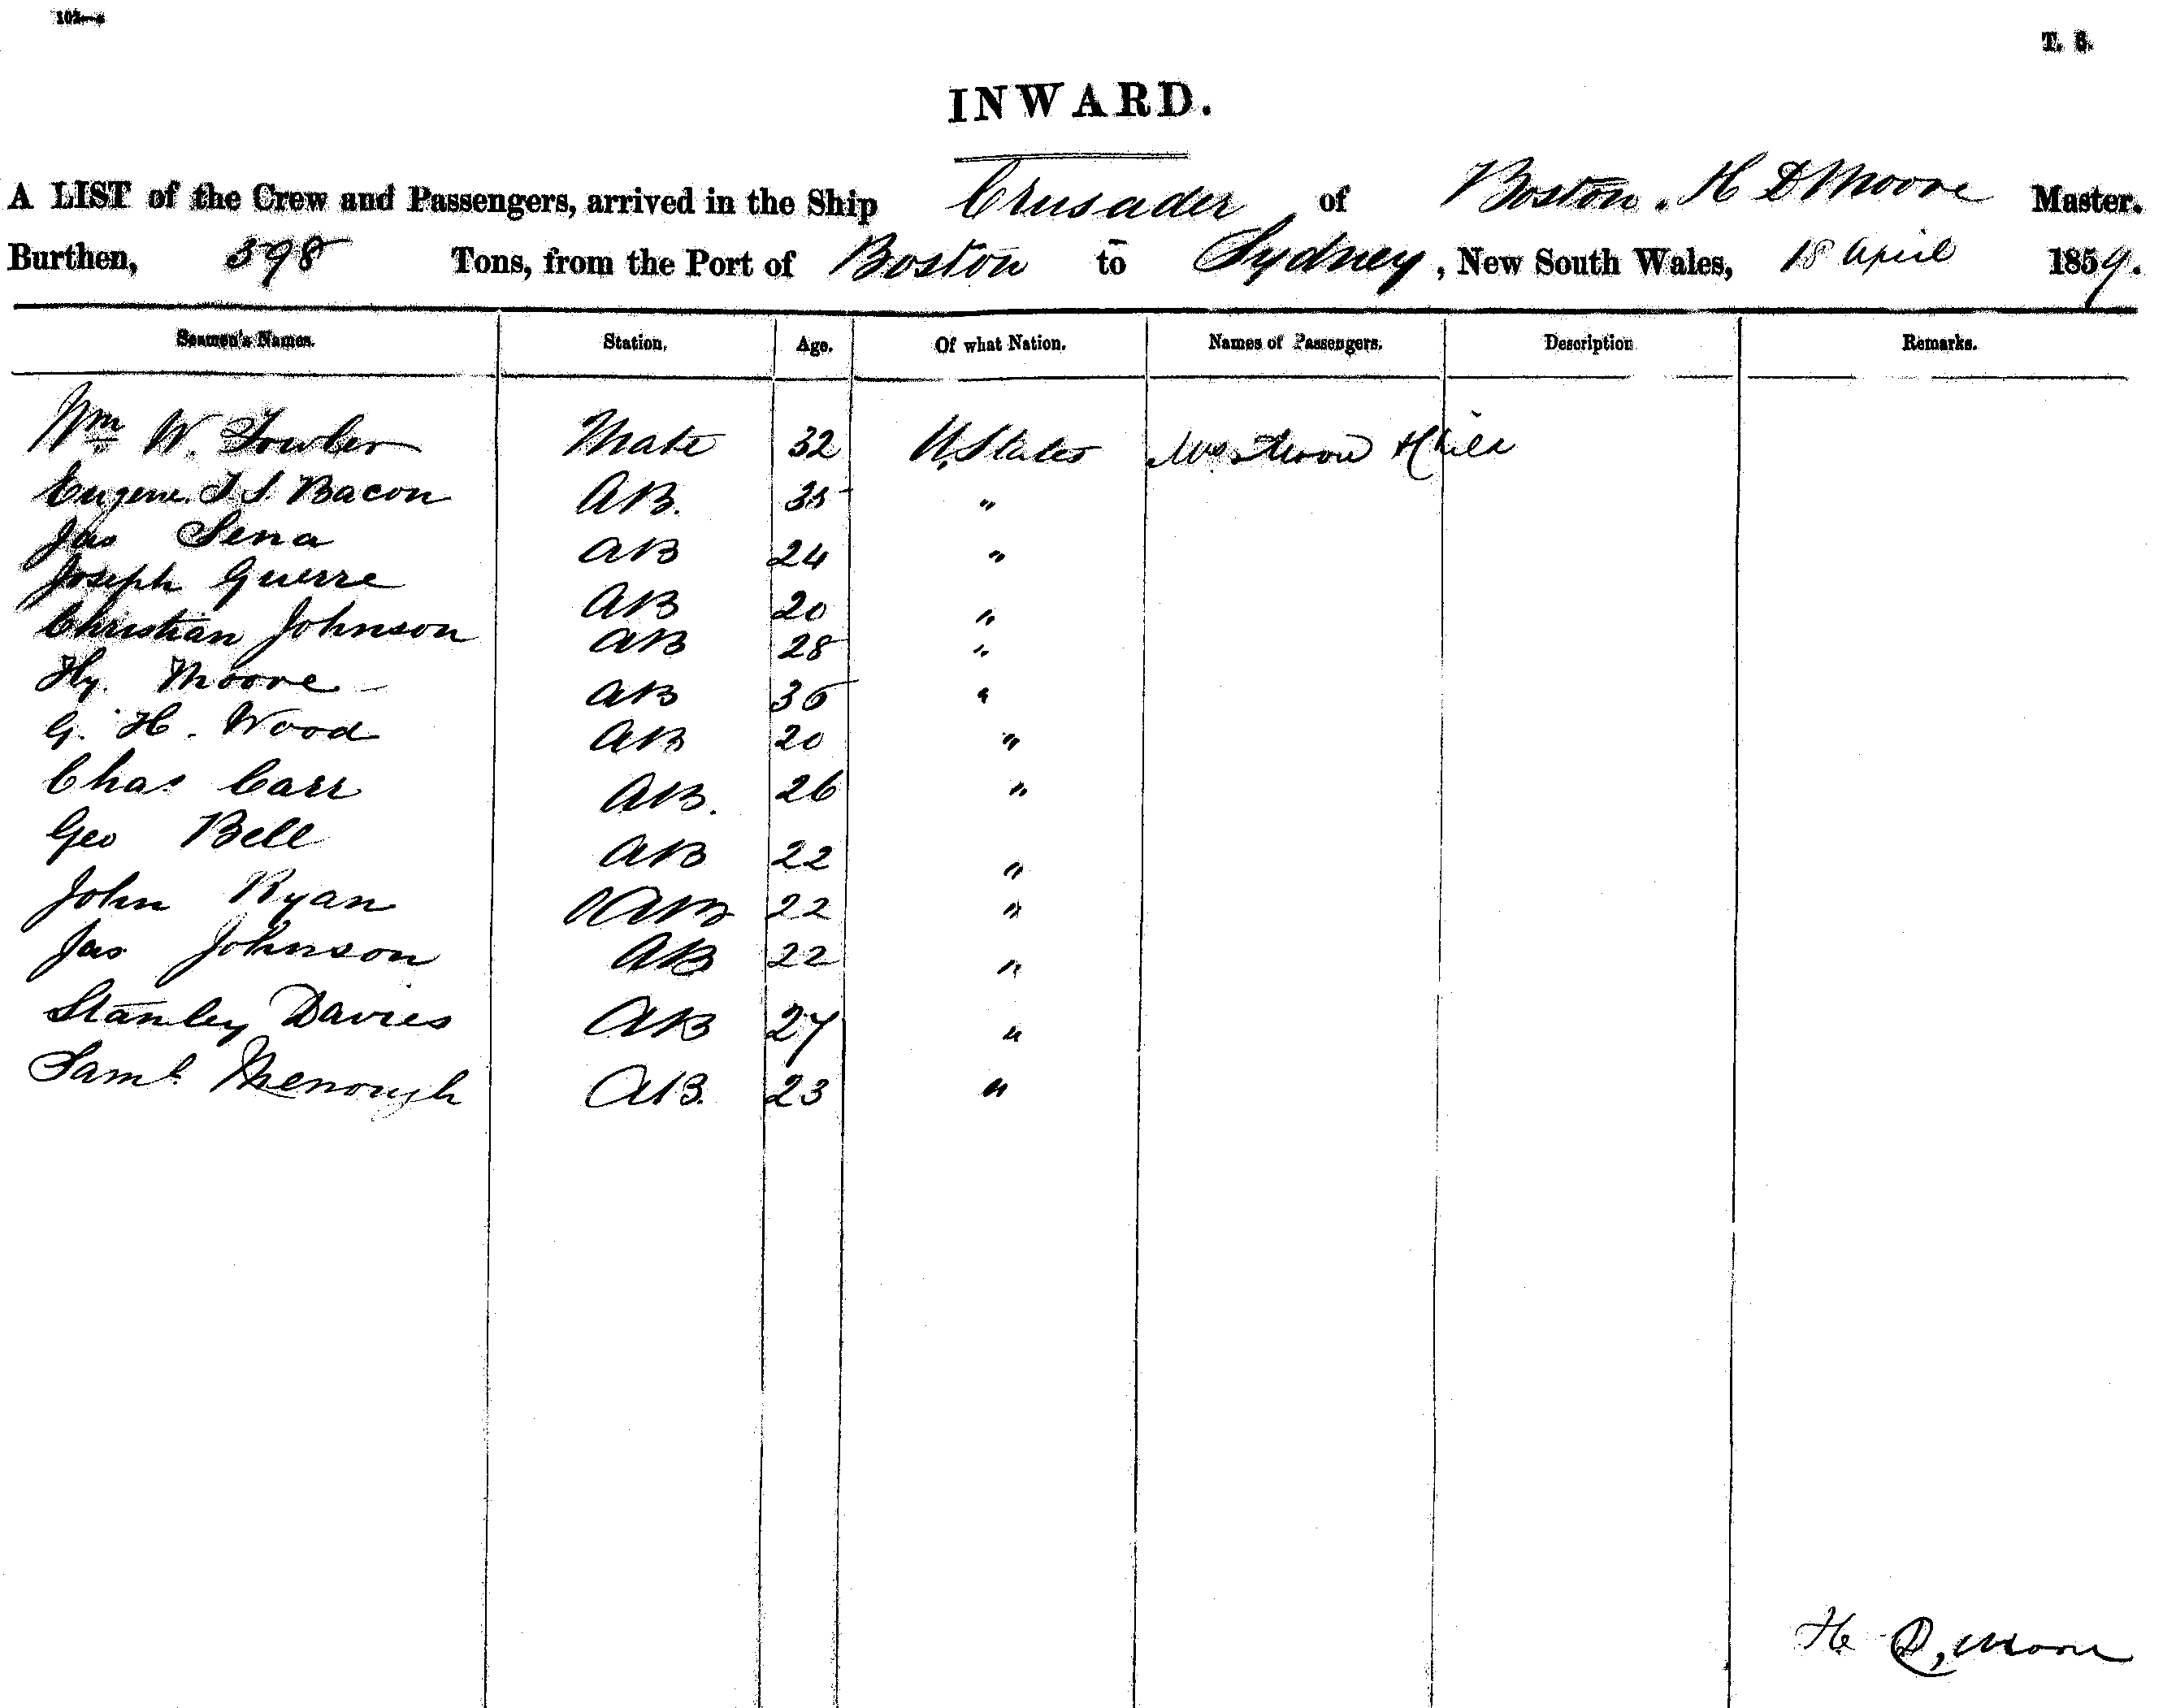 T. 8.
INWARD.
A LIST of the Crew and Passengers, arrived in the Ship Crusader of Boston. H D Moore Master.
Burthen, 398 Tons, from the Port of Boston to Sydney, New South Wales, 18 April 1859.
Seamen's Names. Station. Age. Of what Nation. Names of Passengers. Description Remarks.
Wm W. Fowler Mate 32 U. States Mrs Moore & Child
Eugene Bacon AB. 35 "
Jas Sena AB 24 "
Joseph Guerre AB 20 "
Christian Johnson AB 28 "
Hy. Moore AB "
G. H. Wood AB 20 "
Chas Carr AB. 26 "
Geo Bell AB 22 "
John Ryan AB 22 "
Jas Johnson AB 22 "
Stanley Davies AB 27 "
Saml. AB. 23 "
H D, Moore